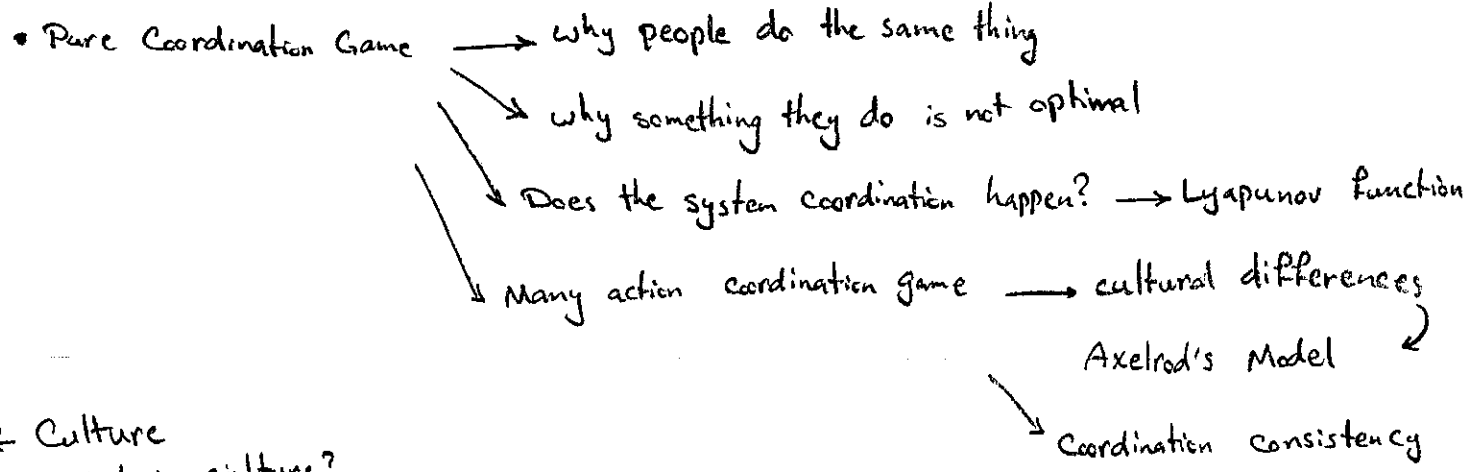 • Pure Coordination Game → why people do the same thing
why something they do is not optimal
Does the system coordination happen? → Lyapunov function
Many action coordination game → cultural differences
Axelrod's Model
Coordination consistency
Culture
culture?